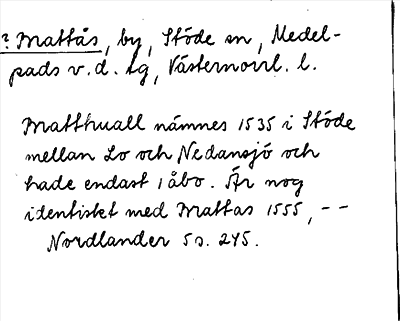 ? Mattås, by, Stöde sn, Medel-
pads v.d. tg, Västernorrl. l.
Matthuall nämnes 1535 i Stöde
mellan Lo och Nedansjö och
hade endast 1 åbo. Är nog
identiskt med Mattas 1555, --
Nordlander 5 s. 245.